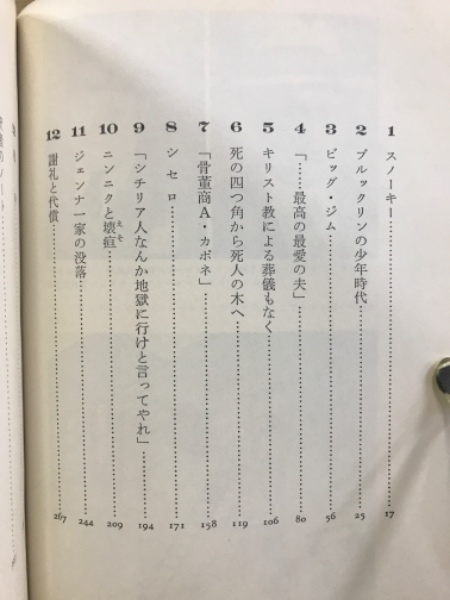 1 スノーキー……17
2 ブルックリンの少年時代……25
3 ビッグ・ジム……56
4 「……最高の最愛の夫」……80
5 キリスト教による葬儀もなく……106
6 死の四つ角から死人の木へ……119
7 「骨董商A・カポネ」……158
8 シセロ……171
9 「シチリア人なんか地獄に行けと言ってやれ」……194
10 ニンニクと壊疽……209
えそ
11 ジェンナ一家の没落……244
12 謝礼と代償……267